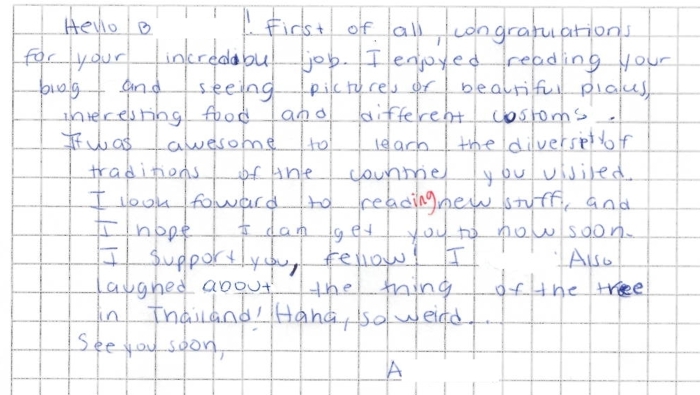 Hello B ! First of all, congratulations
for your incredible job. I enjoyed reading your
blog and seeing pictures of beautiful places,
interesting food and different costoms.
It was awesome to learn the diversity of
traditions of the countries you visited.
I look foward to reading new stuff, and
I hope I can get you to now soon.
I support you, fellow! I Also
laughed about the thing of the tree
in Thailand! Haha, so weird...
See you soon,
A